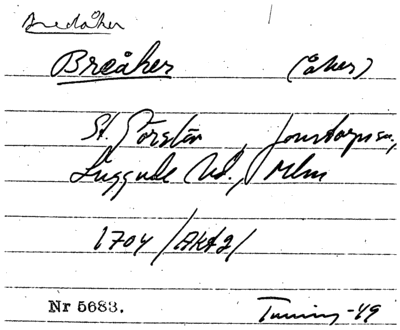 Bredåker
Breåker (åker)
St. Görstär, Jonstorps sn,
Luggude hd., Mlm
1704 /Akt 2/
Nr 5683. Tuning -49